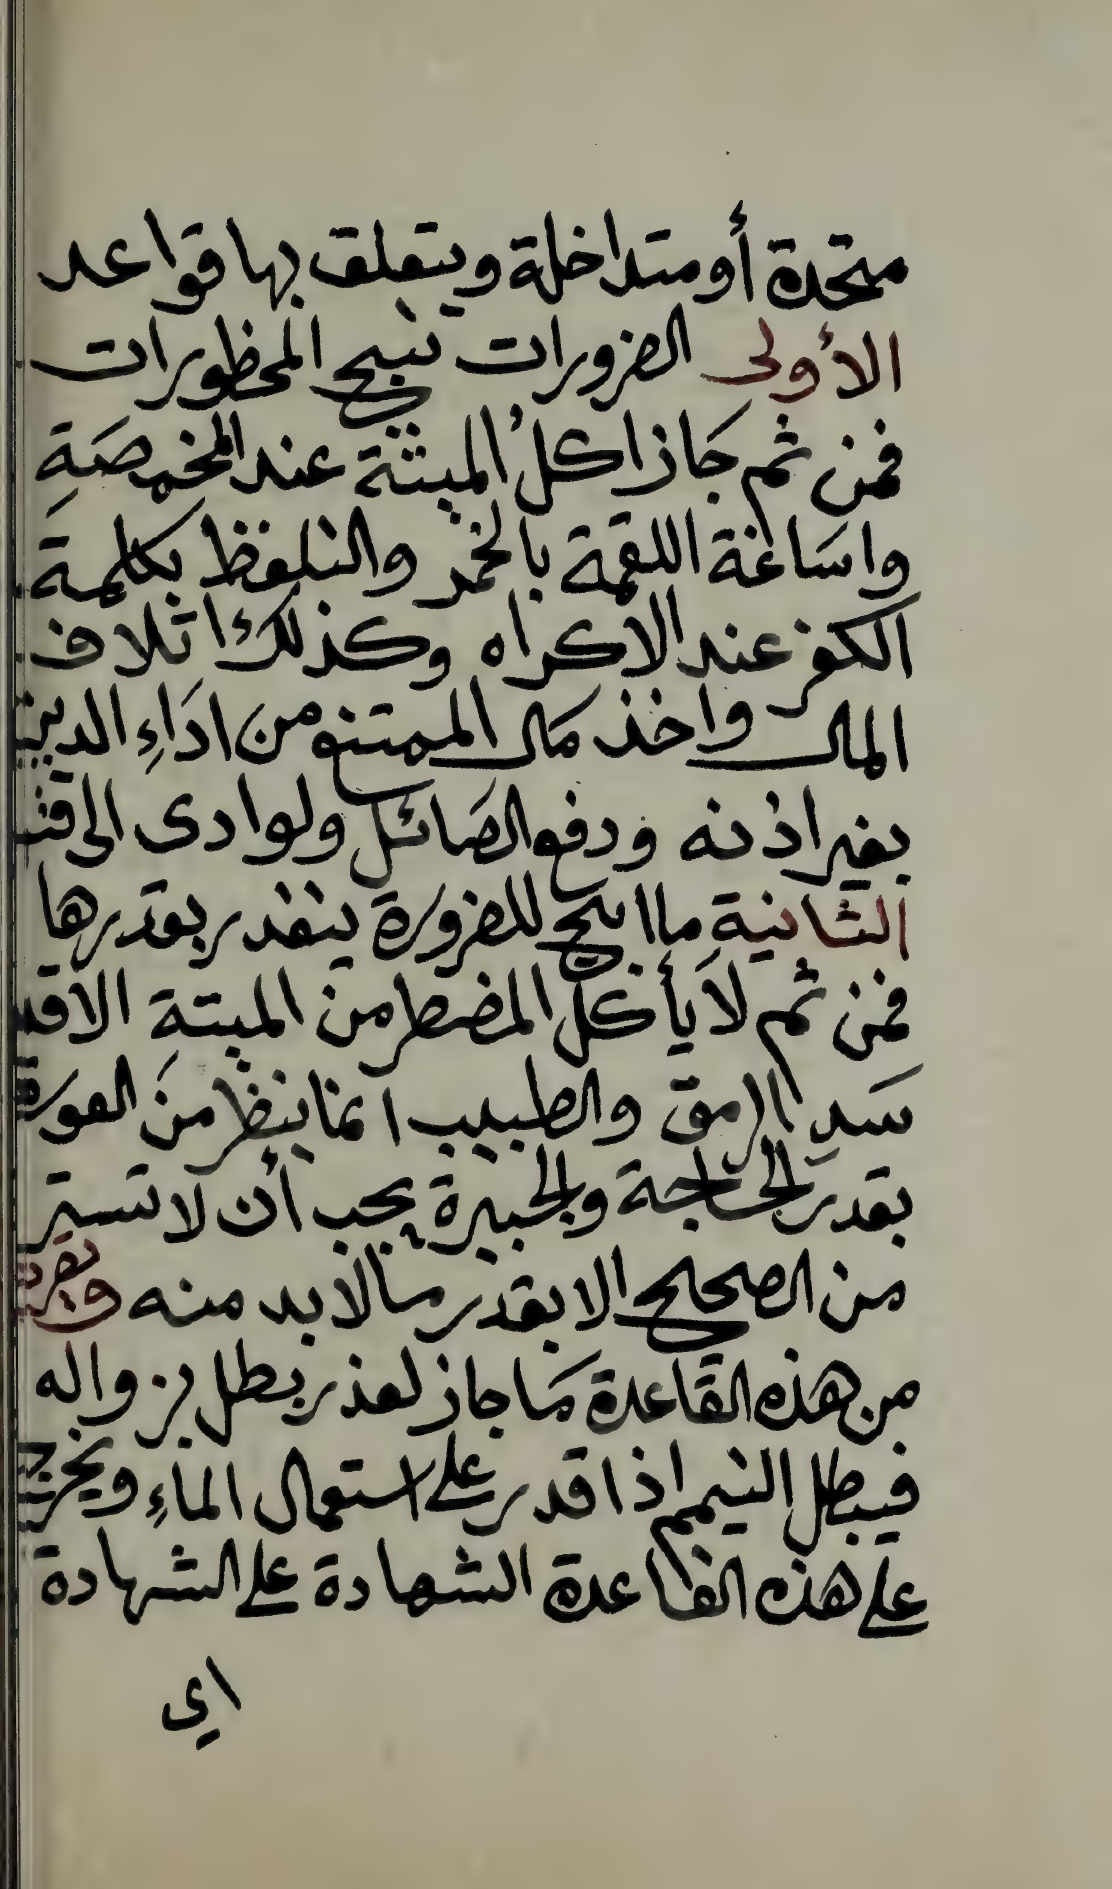 متحدة أو متداخلة ويتعلق بها قواعد
الأولى الضرورات تبيح المحظورات
فمن ثم جَاز اكلُ الميتة عند المخمصَةِ
واسَاغة اللقمة بالخمر والتلفظ بكلمة
الكفر عند الاكراه وكذلك اتلاف
المال واخذ مَال الممتنع من ادَاءِ الدين
بغير اذنه ودفع الصَائل ولو ادى الى
الثانية ما ابيح للضرورة يتقدر بقدرها
فمن ثم لاَ يأكل المضطر من الميتة الا
سَدِ الرمق والطبيب انما ينظر منَ العورة
بقدر الحاجة والجبيرة يجب أن لا تستر
من الصحيح الا بقدر ما لا بد منه
من هذه القاعدة مَا جاز لعذر بطل بزواله
فيبطل التيمم اذا قدر على استعمال الماءِ
على هذه القاعدة الشهادة على الشهادة
اي